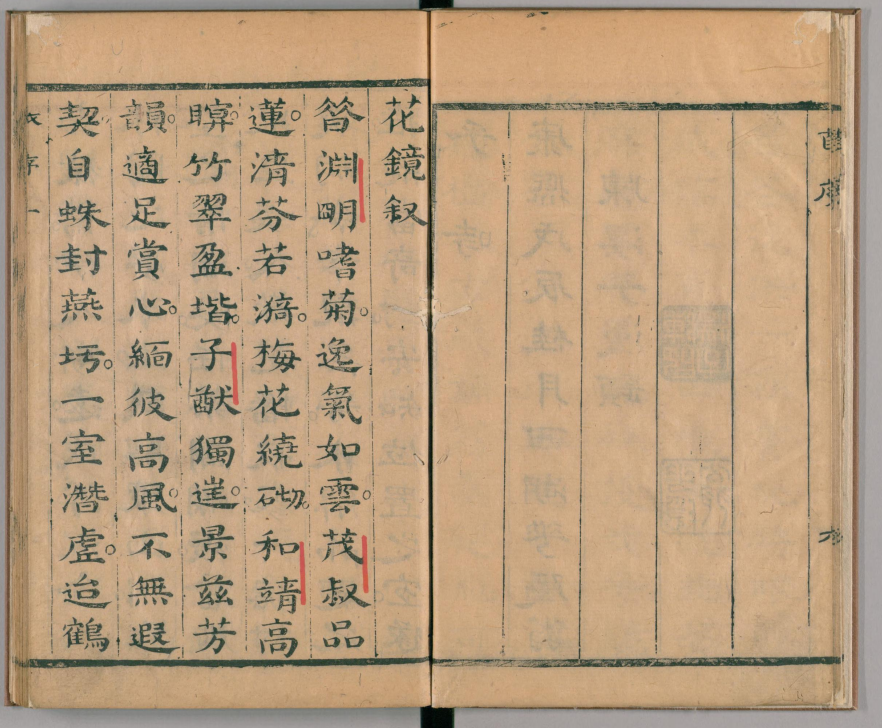 花鏡叙
昝淵明嗜菊。逸氣如雲。茂叔品
蓮。清芬若漪。梅花繞砌。和靖高
竹翠盈堦。子猷獨。景茲芳
韻。適足賞心。緬彼高風。不無遐
契。自蛛封燕圬。一室潛虛。迨鶴
序 一